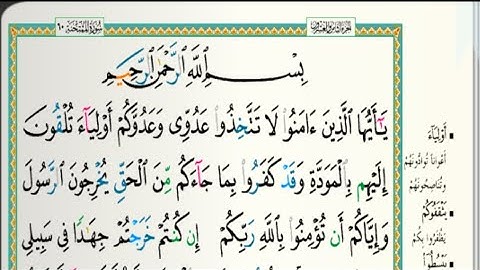 الجزء الثامن والعشرون
سورة الممتحنة ٦٠
بِسْمِ ٱللَّهِ ٱلرَّحْمَٰنِ ٱلرَّحِيمِ
يَٰٓأَيُّهَا ٱلَّذِينَ ءَامَنُوا۟ لَا تَتَّخِذُوا۟ عَدُوِّى وَعَدُوَّكُمْ أَوْلِيَآءَ تُلْقُونَ
إِلَيْهِم بِٱلْمَوَدَّةِ وَقَدْ كَفَرُوا۟ بِمَا جَآءَكُم مِّنَ ٱلْحَقِّ يُخْرِجُونَ ٱلرَّسُولَ
وَإِيَّاكُمْ أَن تُؤْمِنُوا۟ بِٱللَّهِ رَبِّكُمْ إِن كُنتُمْ خَرَجْتُمْ جِهَٰدًا فِى سَبِيلِى
أَوْلِيَاءَ
أَعْوَانًا تُوَادُّونَهُمْ
وَتُنَاصِحُونَهُمْ
يَثْقَفُوكُمْ
يَظْفَرُوا بِكُمْ